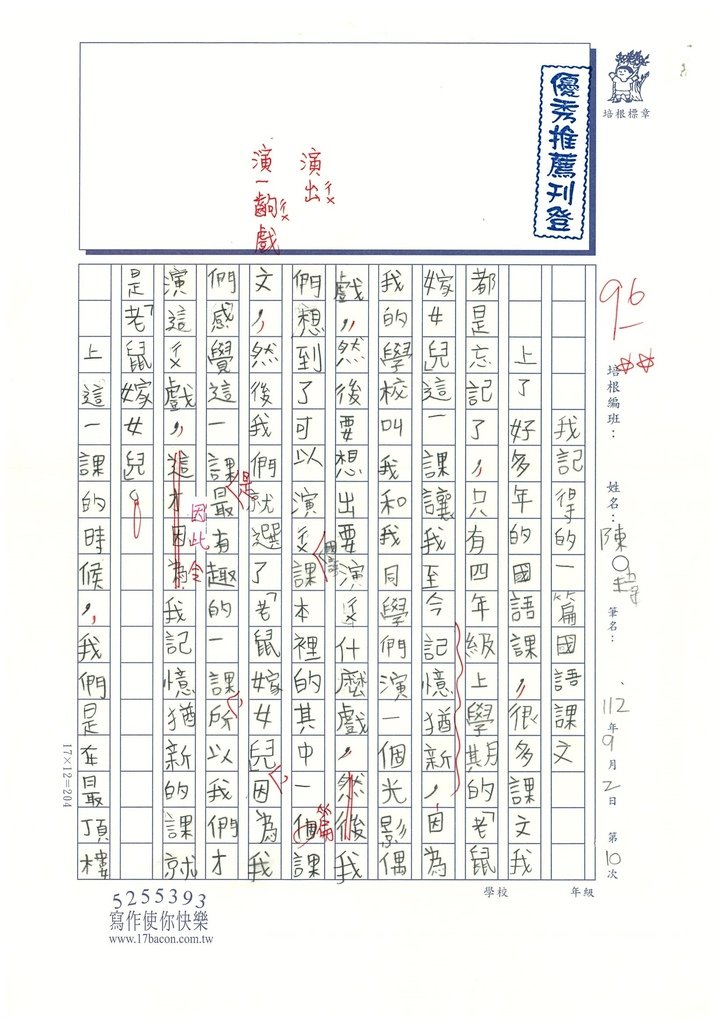 培根標章
優秀推薦刊登
演出ㄔㄨ
演一齣ㄔㄨ戲
96
培根編班：
姓名：陳○
筆名：
112年9月2日 第10次
學校 年級
我記得的一篇國語課文
上了好多年的國語課，很多課文我
都是忘記了，只有四年級上學期的「老鼠
嫁女兒」這一課讓我至今記憶猶新，因為
我的學校叫我和我同學們演一個光影偶
戲，然後要想出要演ㄔㄨ什麼戲，然後我
們想到了可以演ㄔㄨ課本裡的其中一個課
國語
篇
文，然後我們就選了「老鼠嫁女兒」因為我
們感覺這一課最有趣的一課所以我們才
是
演這ㄔㄨ戲，這才因為我記憶猶新的課就
因此令
是「老鼠嫁女兒」。
上這一課的時候，我們是在最頂樓
17×12=204
5255393
寫作使你快樂
www.17bacon.com.tw